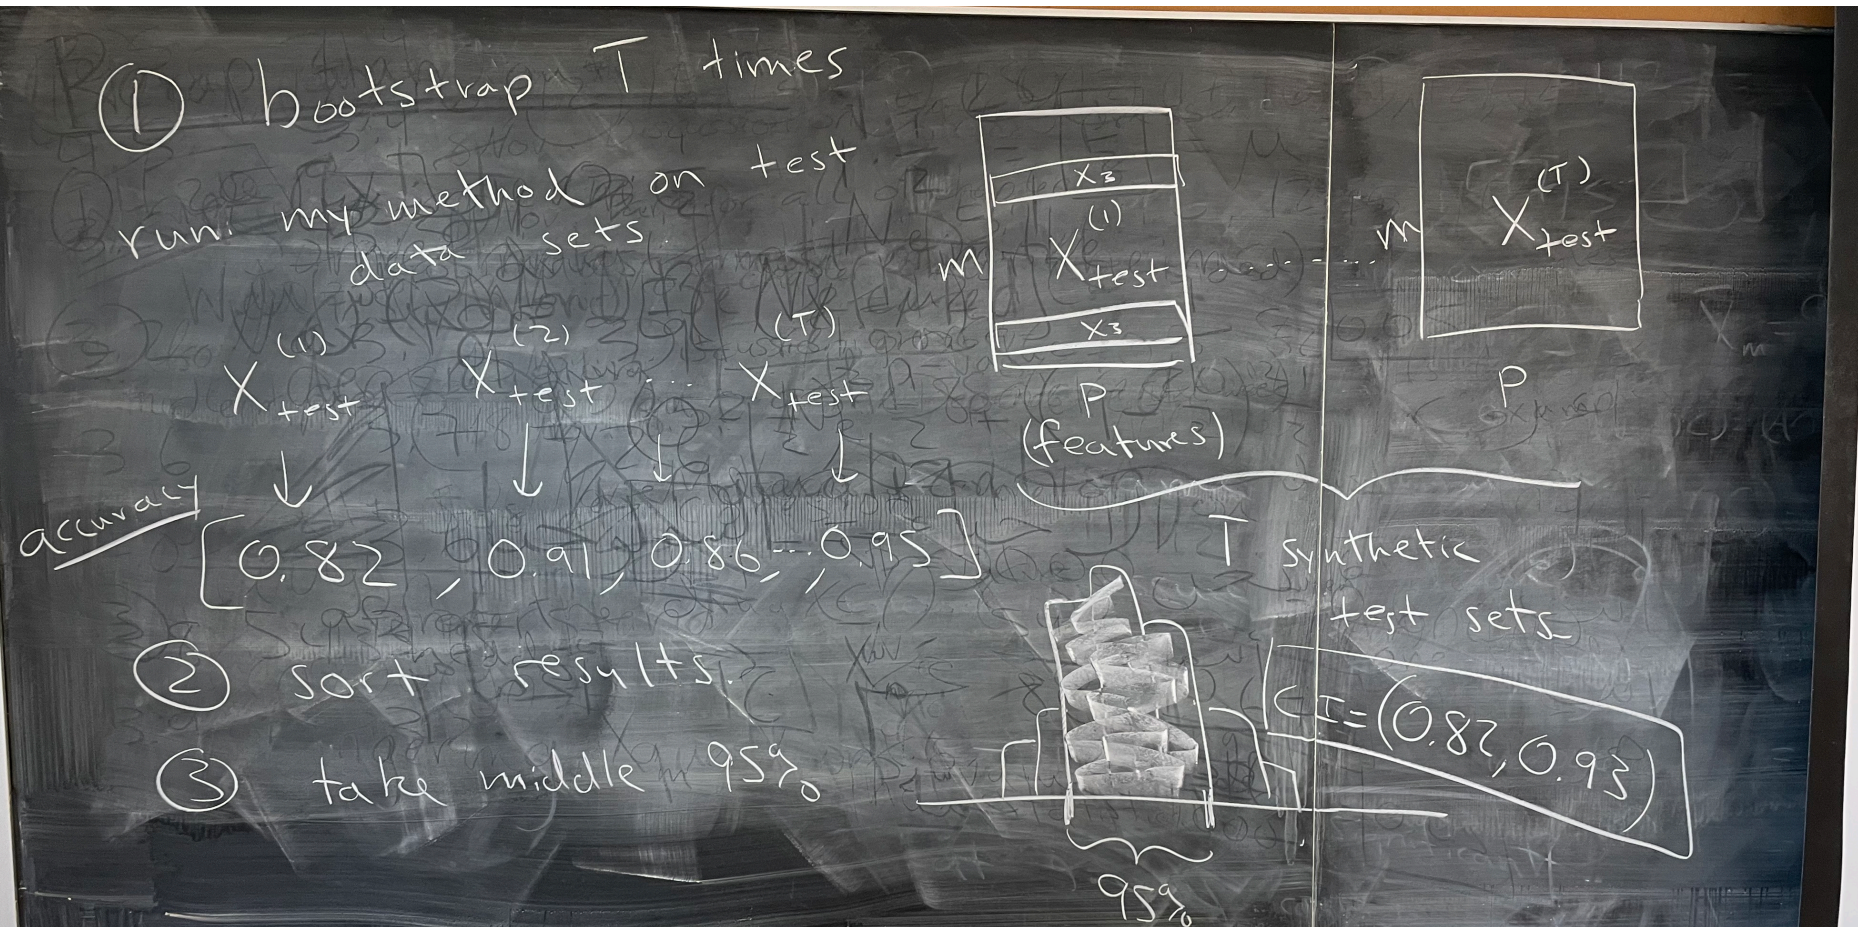 ① bootstrap T times
run my method on test
data sets.
X_test^(1) X_test^(2) ... X_test^(T)
accuracy
[0.82, 0.91, 0.86, ..., 0.95]
② sort results.
③ take middle 95%
X3
m X_test^(1)
X3
P
(features)
........
m X_test^(T)
P
T synthetic
test sets
CI=(0.82, 0.93)
95%